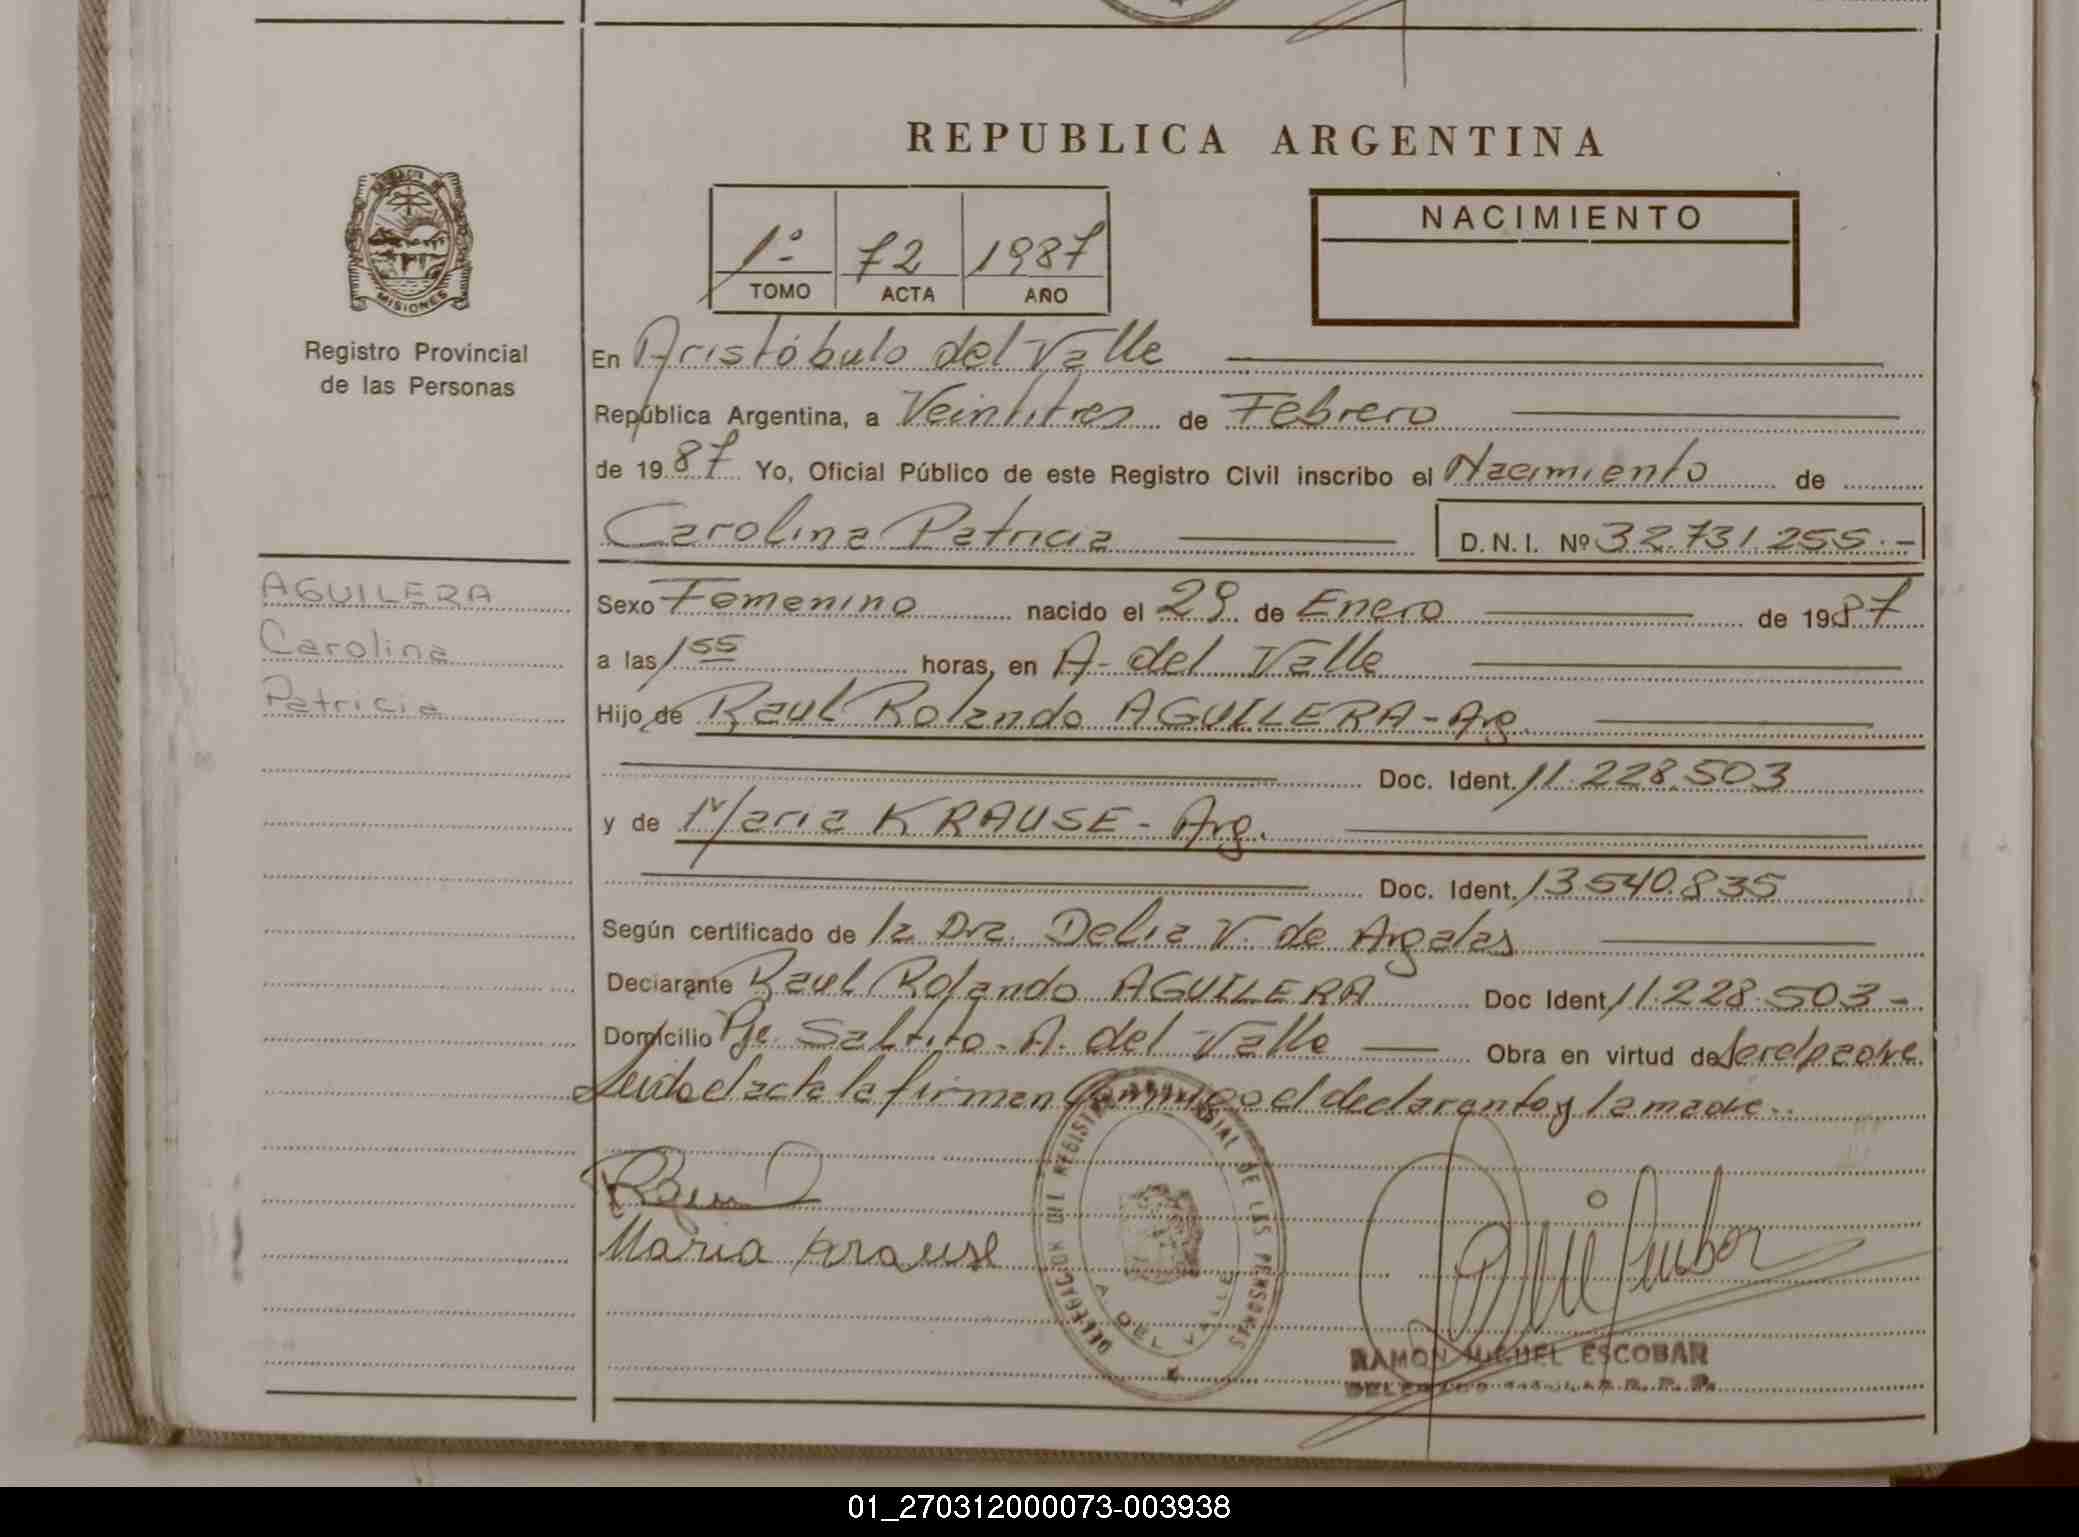 REPUBLICA ARGENTINA
MISIONES
Registro Provincial
de las Personas
1º 72 1987
TOMO ACTA AÑO
NACIMIENTO
En Aristóbulo del Valle
República Argentina, a Veintitres de Febrero
de 1987 Yo, Oficial Público de este Registro Civil inscribo el Nacimiento de
Carolina Patricia D.N.I. Nº 32.731.255.-
AGUILERA
Carolina
Patricia
Sexo Femenino nacido el 29 de Enero de 1987
a las 1 55 horas, en A. del Valle
Hijo de Raul Rolando AGUILERA - Arg.
Doc. Ident. 11.228.503
y de Maria KRAUSE - Arg.
Doc. Ident. 13.540.835
Según certificado de la Dra. Delia V. de Argalas
Declarante Raul Rolando AGUILERA Doc Ident 11.228.503-
Domicilio Pje. Saltito - A. del Valle Obra en virtud de ser el padre
Leido el acta la firman conmigo el declarante y la madre..
Maria Krause
DELEGACION DEL REGISTRO PROVINCIAL DE LAS PERSONAS
A. DEL VALLE
RAMON MIGUEL ESCOBAR
01_270312000073-003938